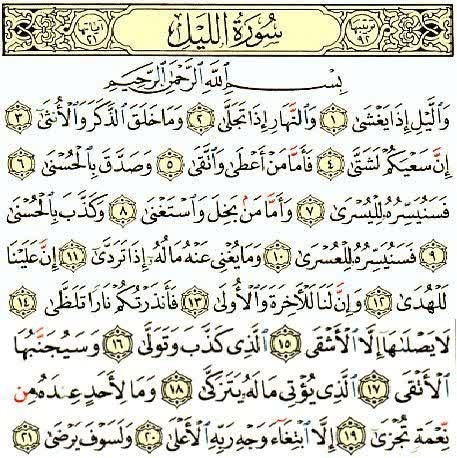 ترتيبها ٩٢ سُورَةُ اللَّيْلِ آياتها ٢١
بِسْمِ اللَّهِ الرَّحْمَٰنِ الرَّحِيمِ
وَاللَّيْلِ إِذَا يَغْشَىٰ ١ وَالنَّهَارِ إِذَا تَجَلَّىٰ ٢ وَمَا خَلَقَ الذَّكَرَ وَالْأُنثَىٰ ٣
إِنَّ سَعْيَكُمْ لَشَتَّىٰ ٤ فَأَمَّا مَنْ أَعْطَىٰ وَاتَّقَىٰ ٥ وَصَدَّقَ بِالْحُسْنَىٰ ٦
فَسَنُيَسِّرُهُ لِلْيُسْرَىٰ ٧ وَأَمَّا مَنْ بَخِلَ وَاسْتَغْنَىٰ ٨ وَكَذَّبَ بِالْحُسْنَىٰ
٩ فَسَنُيَسِّرُهُ لِلْعُسْرَىٰ ١٠ وَمَا يُغْنِي عَنْهُ مَالُهُ إِذَا تَرَدَّىٰ ١١ إِنَّ عَلَيْنَا
لَلْهُدَىٰ ١٢ وَإِنَّ لَنَا لَلْآخِرَةَ وَالْأُولَىٰ ١٣ فَأَنذَرْتُكُمْ نَارًا تَلَظَّىٰ ١٤
لَا يَصْلَاهَا إِلَّا الْأَشْقَى ١٥ الَّذِي كَذَّبَ وَتَوَلَّىٰ ١٦ وَسَيُجَنَّبُهَا
الْأَتْقَى ١٧ الَّذِي يُؤْتِي مَالَهُ يَتَزَكَّىٰ ١٨ وَمَا لِأَحَدٍ عِندَهُ مِن
نِّعْمَةٍ تُجْزَىٰ ١٩ إِلَّا ابْتِغَاءَ وَجْهِ رَبِّهِ الْأَعْلَىٰ ٢٠ وَلَسَوْفَ يَرْضَىٰ ٢١